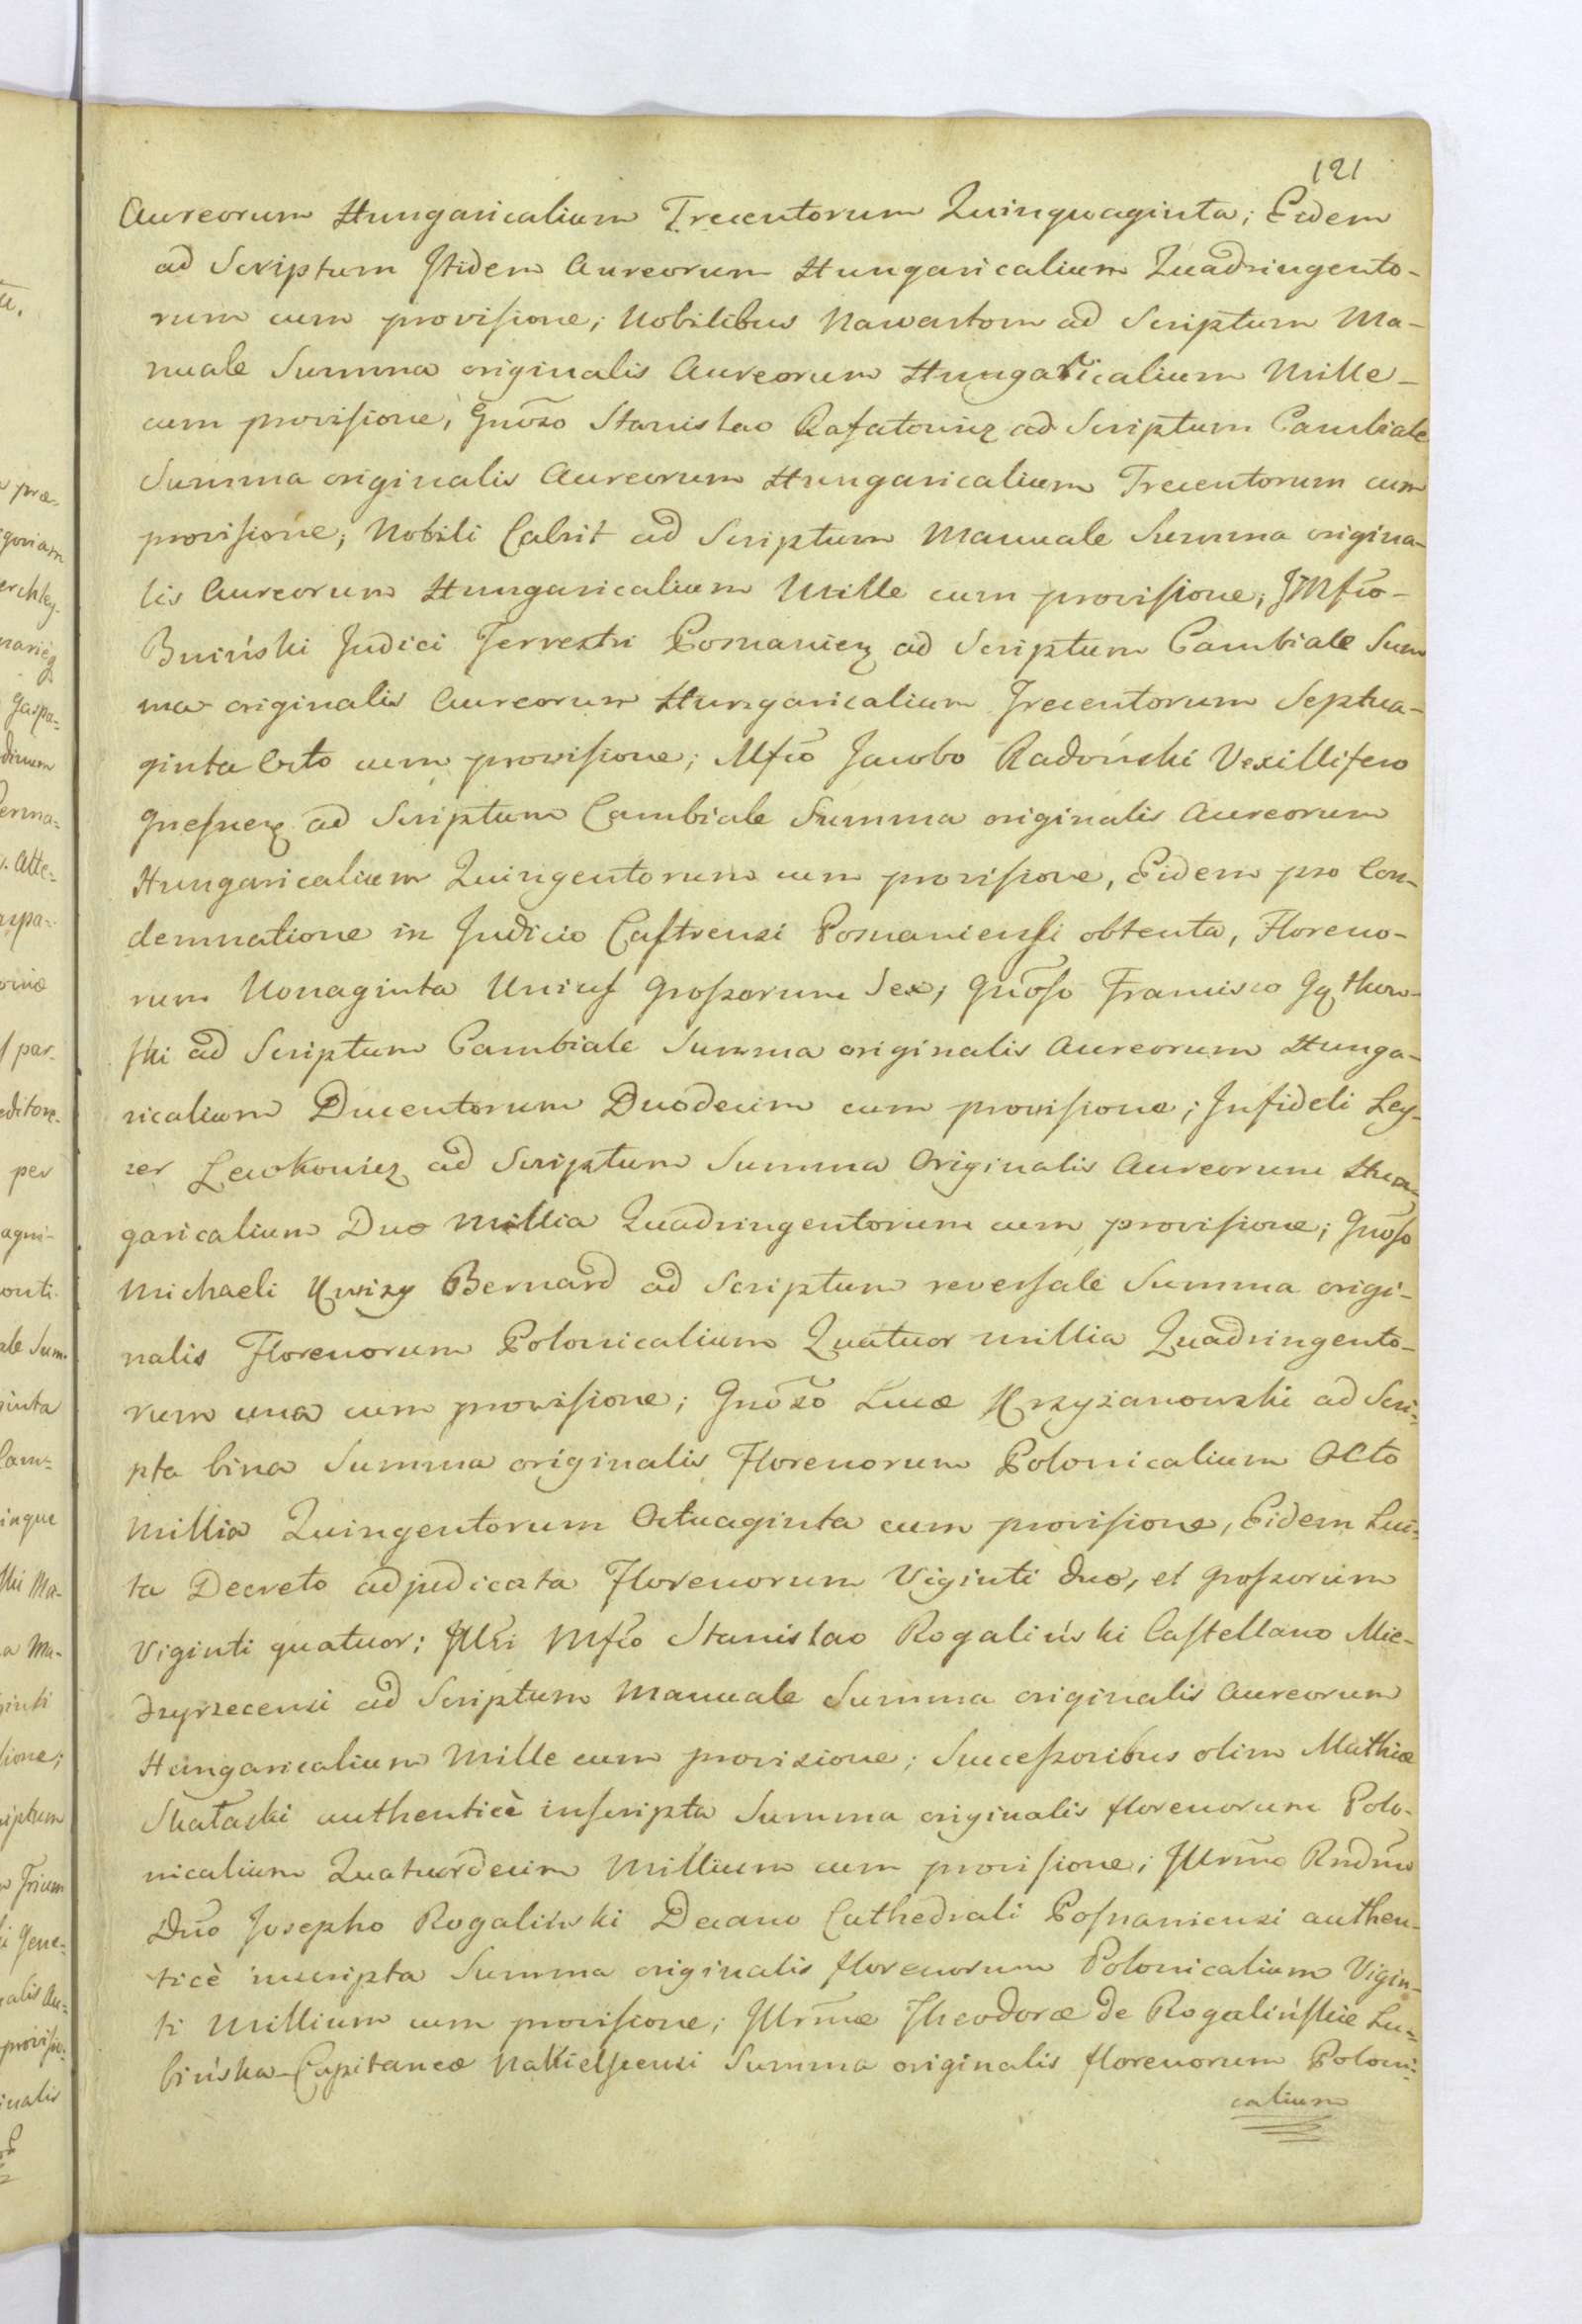 121
Aureorum Hungaricalium Trecentorum Quinquaginta; Eidem
ad Scriptum Itidem Aureorum Hungaricalium Quadringento-
rum cum provisione; Nobilibus Nawartom ad Scriptum Ma-
nuale Summa originalis Aureorum Hungaricalium Mille-
cum provisione; Gnõzo Stanislao Rafatowicz ad Scriptum Cambiale
Summa originalis Aureorum Hungaricalium Trecentorum cum
provisione; Nobili Cabrit ad Scriptum Manuale Summa origina-
lis Aureorum Hungaricalium Mille cum provisione; JMfco-
Bniński Judici Terrestri Posnanien ad Scriptum Cambiale Sum
ma originalis Aureorum Hungaricalium Trecentorum Septua-
ginta Octo cum provisione; Mfco Jacobo Radoński Vexillifero
Gnesnen ad Scriptum Cambiale Summa originalis Aureorum
Hungaricalium Quingentorum cum provisione, Eidem pro Con-
demnatione in Judicio Castrensi Posnaniensi obtenta, Floreno-
rum Nonaginta Unius Grossorum Sex; Gnõso Francisco
ski ad Scriptum Cambiale Summa originalis Aureorum Hunga-
ricalium Ducentorum Duodecim cum provisione; Infideli Ley-
zer Lewkowicz ad Scriptum Summa Originalis Aureorum Hun-
garicalium Duo Millia Quadringentorum cum provisione; Gnõso
Michaeli Bernard ad Scriptum reversale Summa origi-
nalis Florenorum Polonicalium Quatuor millia Quadringento-
rum una cum provisione; Gnõzo Lucæ Krzyżanowski ad Scri-
pta bina Summa originalis Florenorum Polonicalium Octo
Millia Quingentorum Octuaginta cum provisione, Eidem Lui-
ta Decreto adjudicata Florenorum Viginti duo, et Grossorum
Viginti quatuor; Illri Mfco Stanislao Rogaliński Castellano Mie-
dzyrzecensi ad Scriptum Manuale Summa originalis Aureorum
Hungaricalium Mille cum provisione; Successoribus olim Mathiæ
Skałaski authenticè inscripta Summa originalis florenorum Polo-
nicalium Quatuordecim Millium cum provisione; Illrmo Rndmo
Dño Josepho Rogaliński Decano Cathedrali Posnaniensi authen-
ticè inscripta Summa originalis florenorum Polonicalium Vigin-
ti Millium cum provisione; Illrmæ Theodoræ de Rogalińskie Lu-
bińska Capitaneæ Nakielscensi Summa originalis florenorum Poloni-
calium